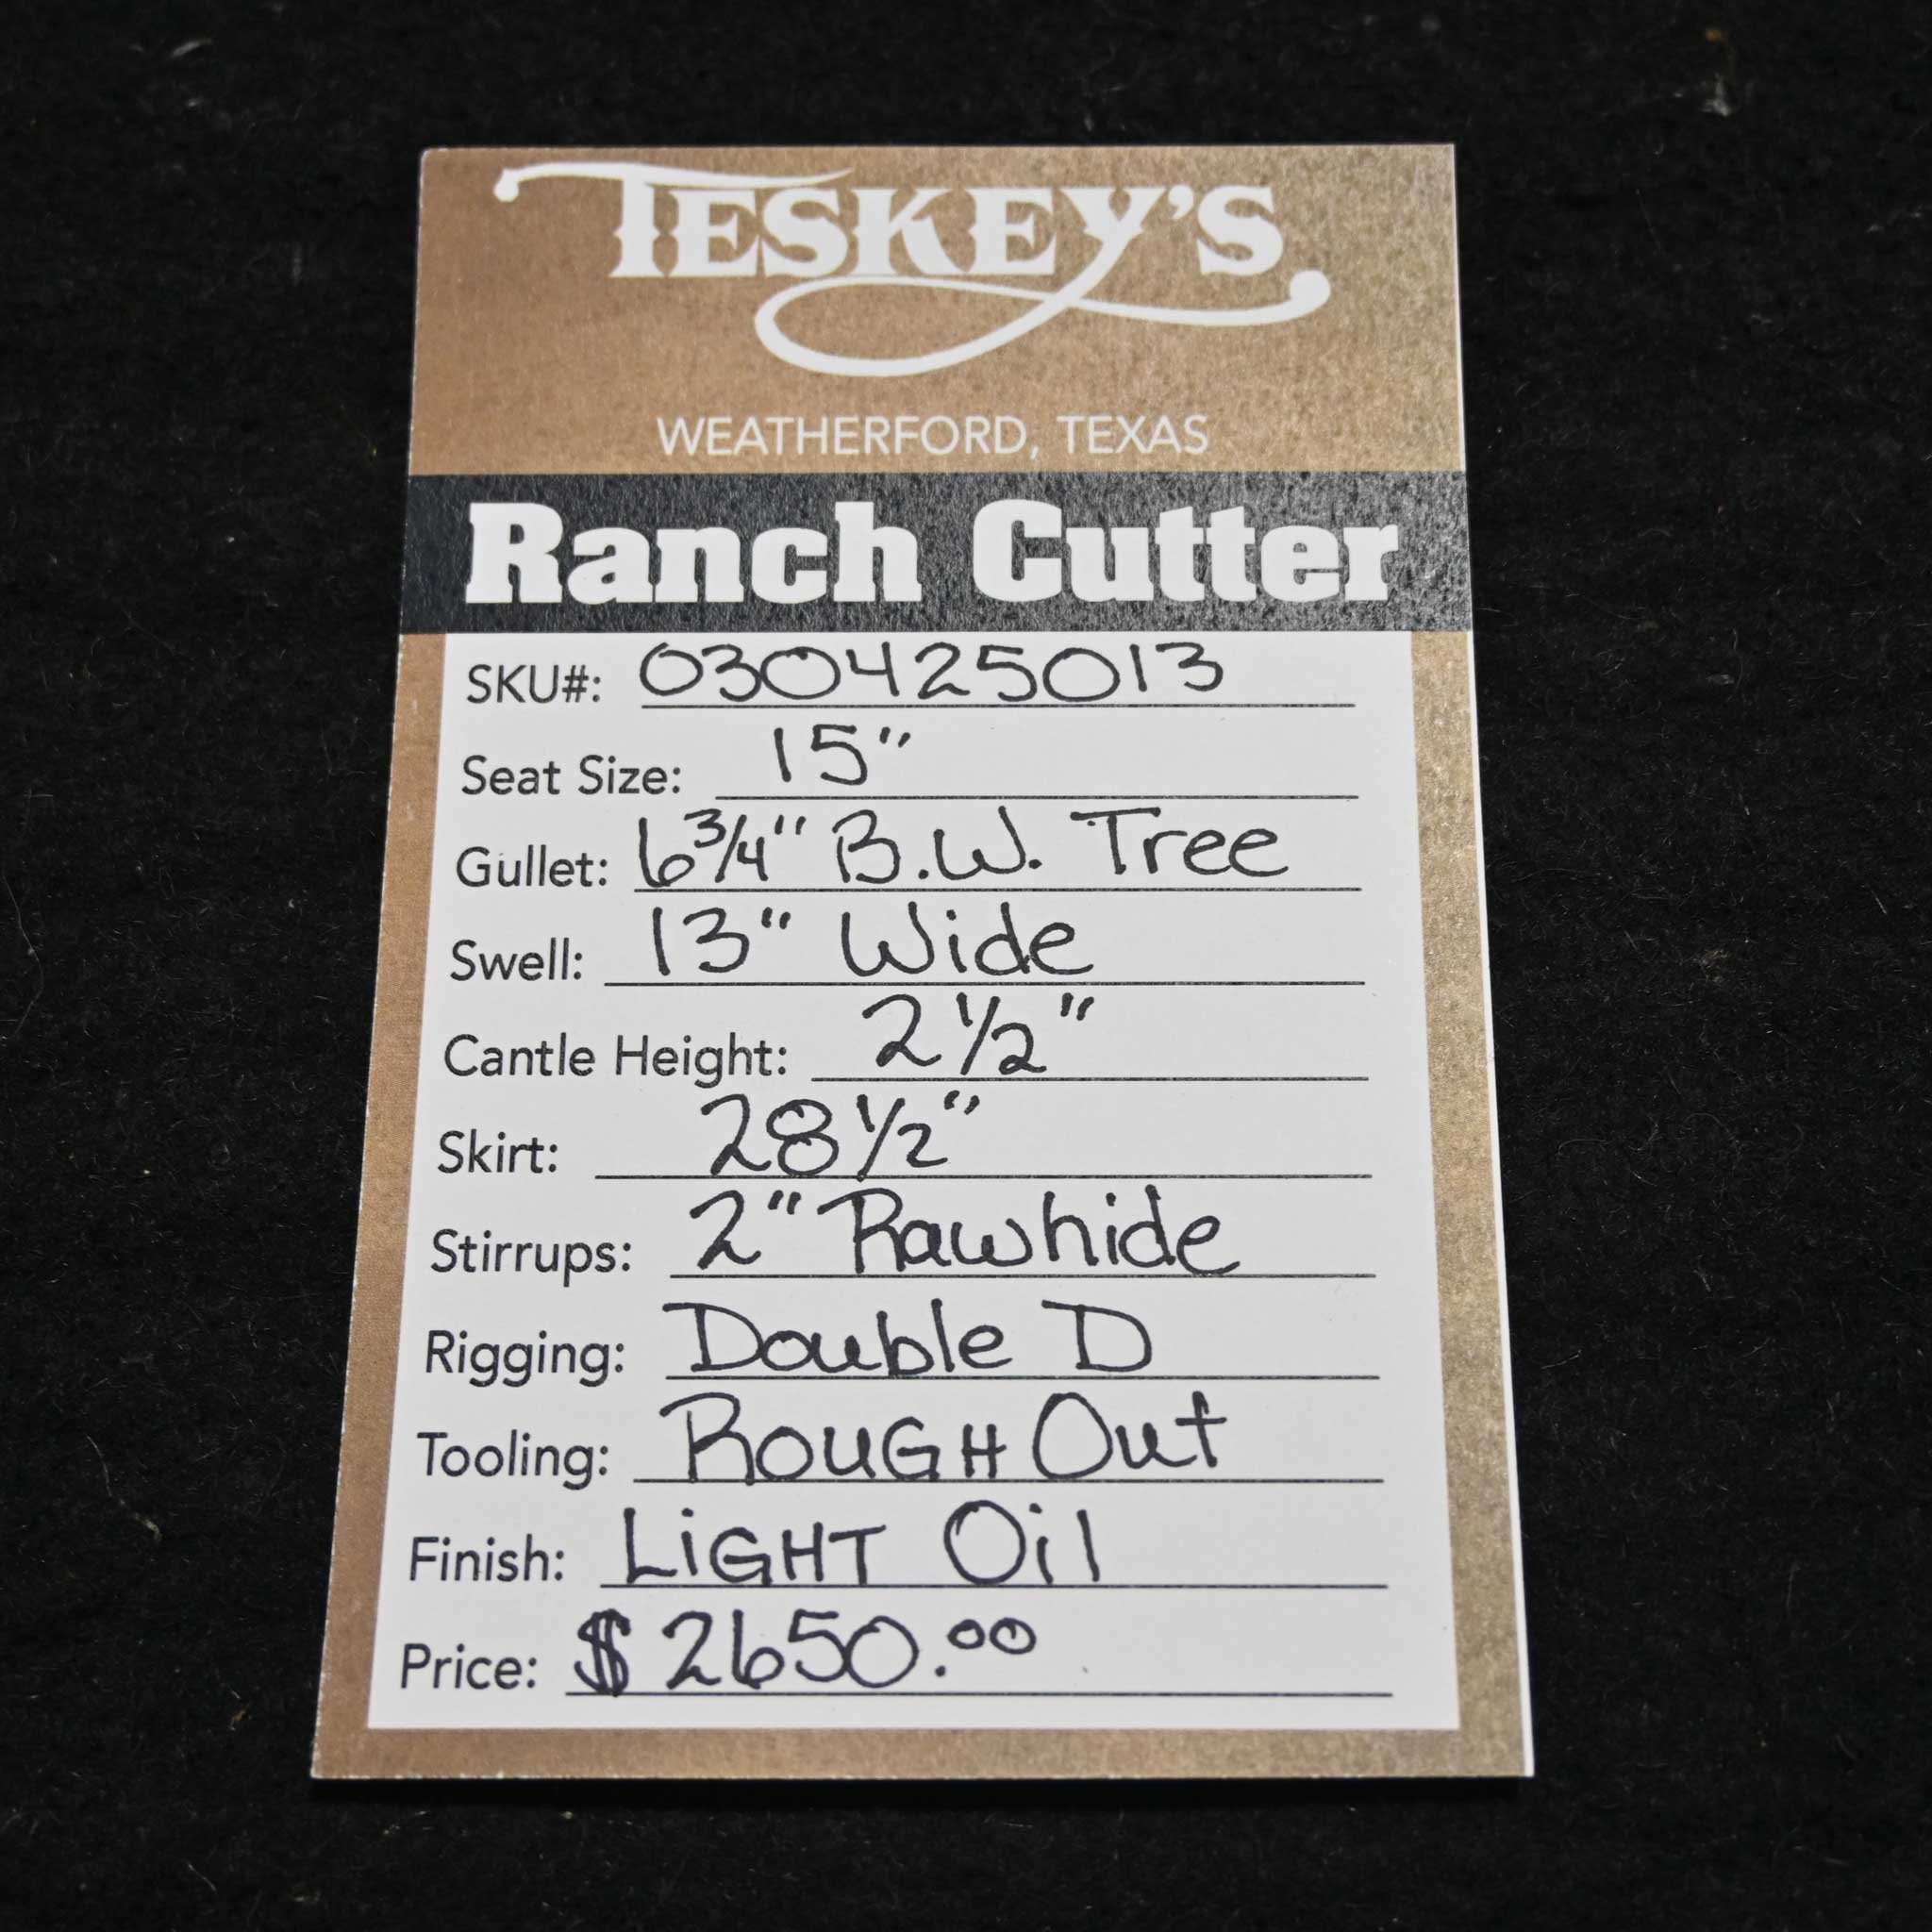 TESKEY'S
WEATHERFORD, TEXAS
Ranch Cutter
SKU#: 030425013
Seat Size: 15"
Gullet: 6 3/4" B.W. Tree
Swell: 13" Wide
Cantle Height: 2 1/2"
Skirt: 28 1/2"
Stirrups: 2" Rawhide
Rigging: Double D
Tooling: ROUGH Out
Finish: LiGHT Oil
Price: $2650.00